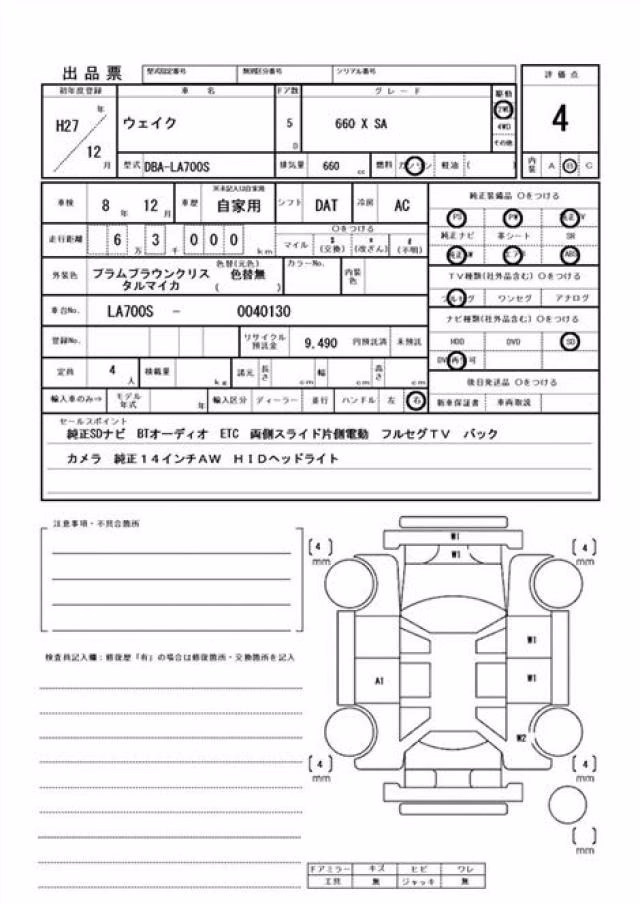 出品票 型式指定番号 類別区分番号 シリアル番号
初年度登録 車名 ドア数 グレード 駆動 評価点
H27年 12月 ウェイク 5D 660 X SA 2WD 4WD その他 4
型式 DBA-LA700S 排気量 660 cc 燃料 ガソリン 軽油 ( ) 内装 A B C
車検 8年 12月 車歴 ※未記入は自家用 自家用 シフト DAT 冷房 AC 純正装備品 ○をつける
PS PW 純正TV
走行距離 6万 3千 0 0 0 km ○をつける マイル $(交換) *(改ざん) #(不明)
純正ナビ 革シート SR
純正AW エアB ABS
外装色 プラムブラウンクリスタルマイカ 色替(元色) 色替無 ( ) カラーNo. 内装色
TV種類(社外品含む) ○をつける
フルセグ ワンセグ アナログ
車台No. LA700S - 0040130
ナビ種類(社外品含む) ○をつける
登録No. リサイクル預託金 9,490 円預託済 未預託
HDD DVD SD
DVD再生可
定員 4人 積載量 kg 諸元 長さ cm 幅 cm 高さ cm
後日発送品 ○をつける
輸入車のみ⇒ モデル年式 年 輸入区分 ディーラー 並行 ハンドル 左 右 新車保証書 車両取説
セールスポイント
純正SDナビ BTオーディオ ETC 両側スライド片側電動 フルセグTV バック
カメラ 純正14インチAW HIDヘッドライト
注意事項・不具合箇所
検査員記入欄：修復歴「有」の場合は修復箇所・交換箇所を記入
W1
[4] mm W1 [4] mm
W1
A1 W1
W2
[4] mm [4] mm
[ ] mm
ドアミラー キズ ヒビ ワレ
工具 無 ジャッキ 無